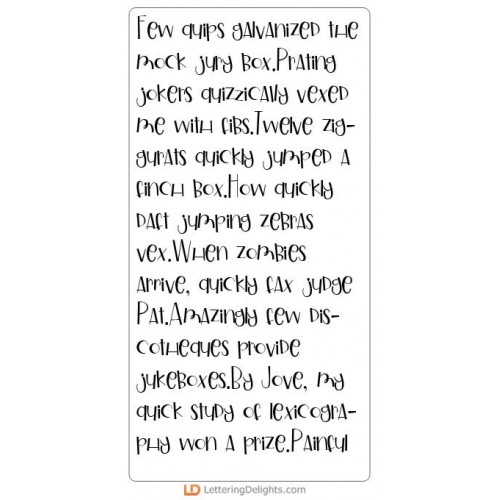 Few quips galvanized the
mock jury box.Prating
jokers quizzically vexed
me with fibs.Twelve zig-
gurats quickly jumped a
finch box.How quickly
daft jumping zebras
vex.When zombies
arrive, quickly fax judge
Pat.Amazingly few dis-
cotheques provide
jukeboxes.By Jove, my
quick study of lexicogra-
phy won a prize.Painful
LD LetteringDelights.com